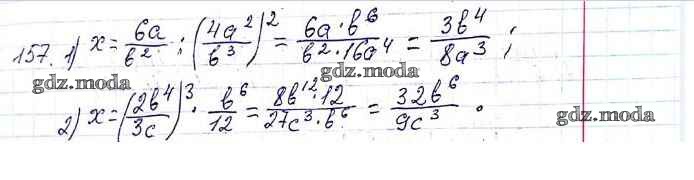 157. 1) x = 6a/b² : (4a²/b³)² = 6a·b⁶/b²·16a⁴ = 3b⁴/8a³ ;
gdz.moda gdz.moda
2) x = (2b⁴/3c)³ · b⁶/12 = 8b¹²·12/27c³·b⁶ = 32b⁶/9c³ .
gdz.moda gdz.moda